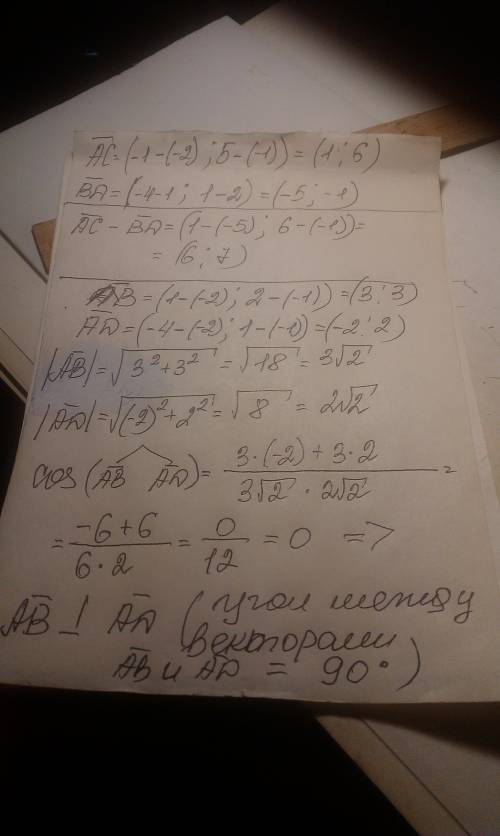 A̅C̅=(-1-(-2); 5-(-1))=(1; 6)
B̅D̅=(-4-1; 1-2)=(-5; -1)
A̅C̅-B̅D̅=(1-(-5); 6-(-1))=
=(6; 7)
A̅B̅=(1-(-2); 2-(-1))=(3; 3)
A̅D̅=(-4-(-2); 1-(-1))=(-2; 2)
|A̅B̅|=√(3²+3²)=√18=3√2
|A̅D̅|=√((-2)²+2²)=√8=2√2
cos(A̅B̅ A̅D̅)=(3·(-2)+3·2)/(3√2·2√2)=
=(-6+6)/(6·2)=0/12=0 =>
A̅B̅⊥A̅D̅ (угол между
векторами
A̅B̅ и A̅D̅ = 90°)